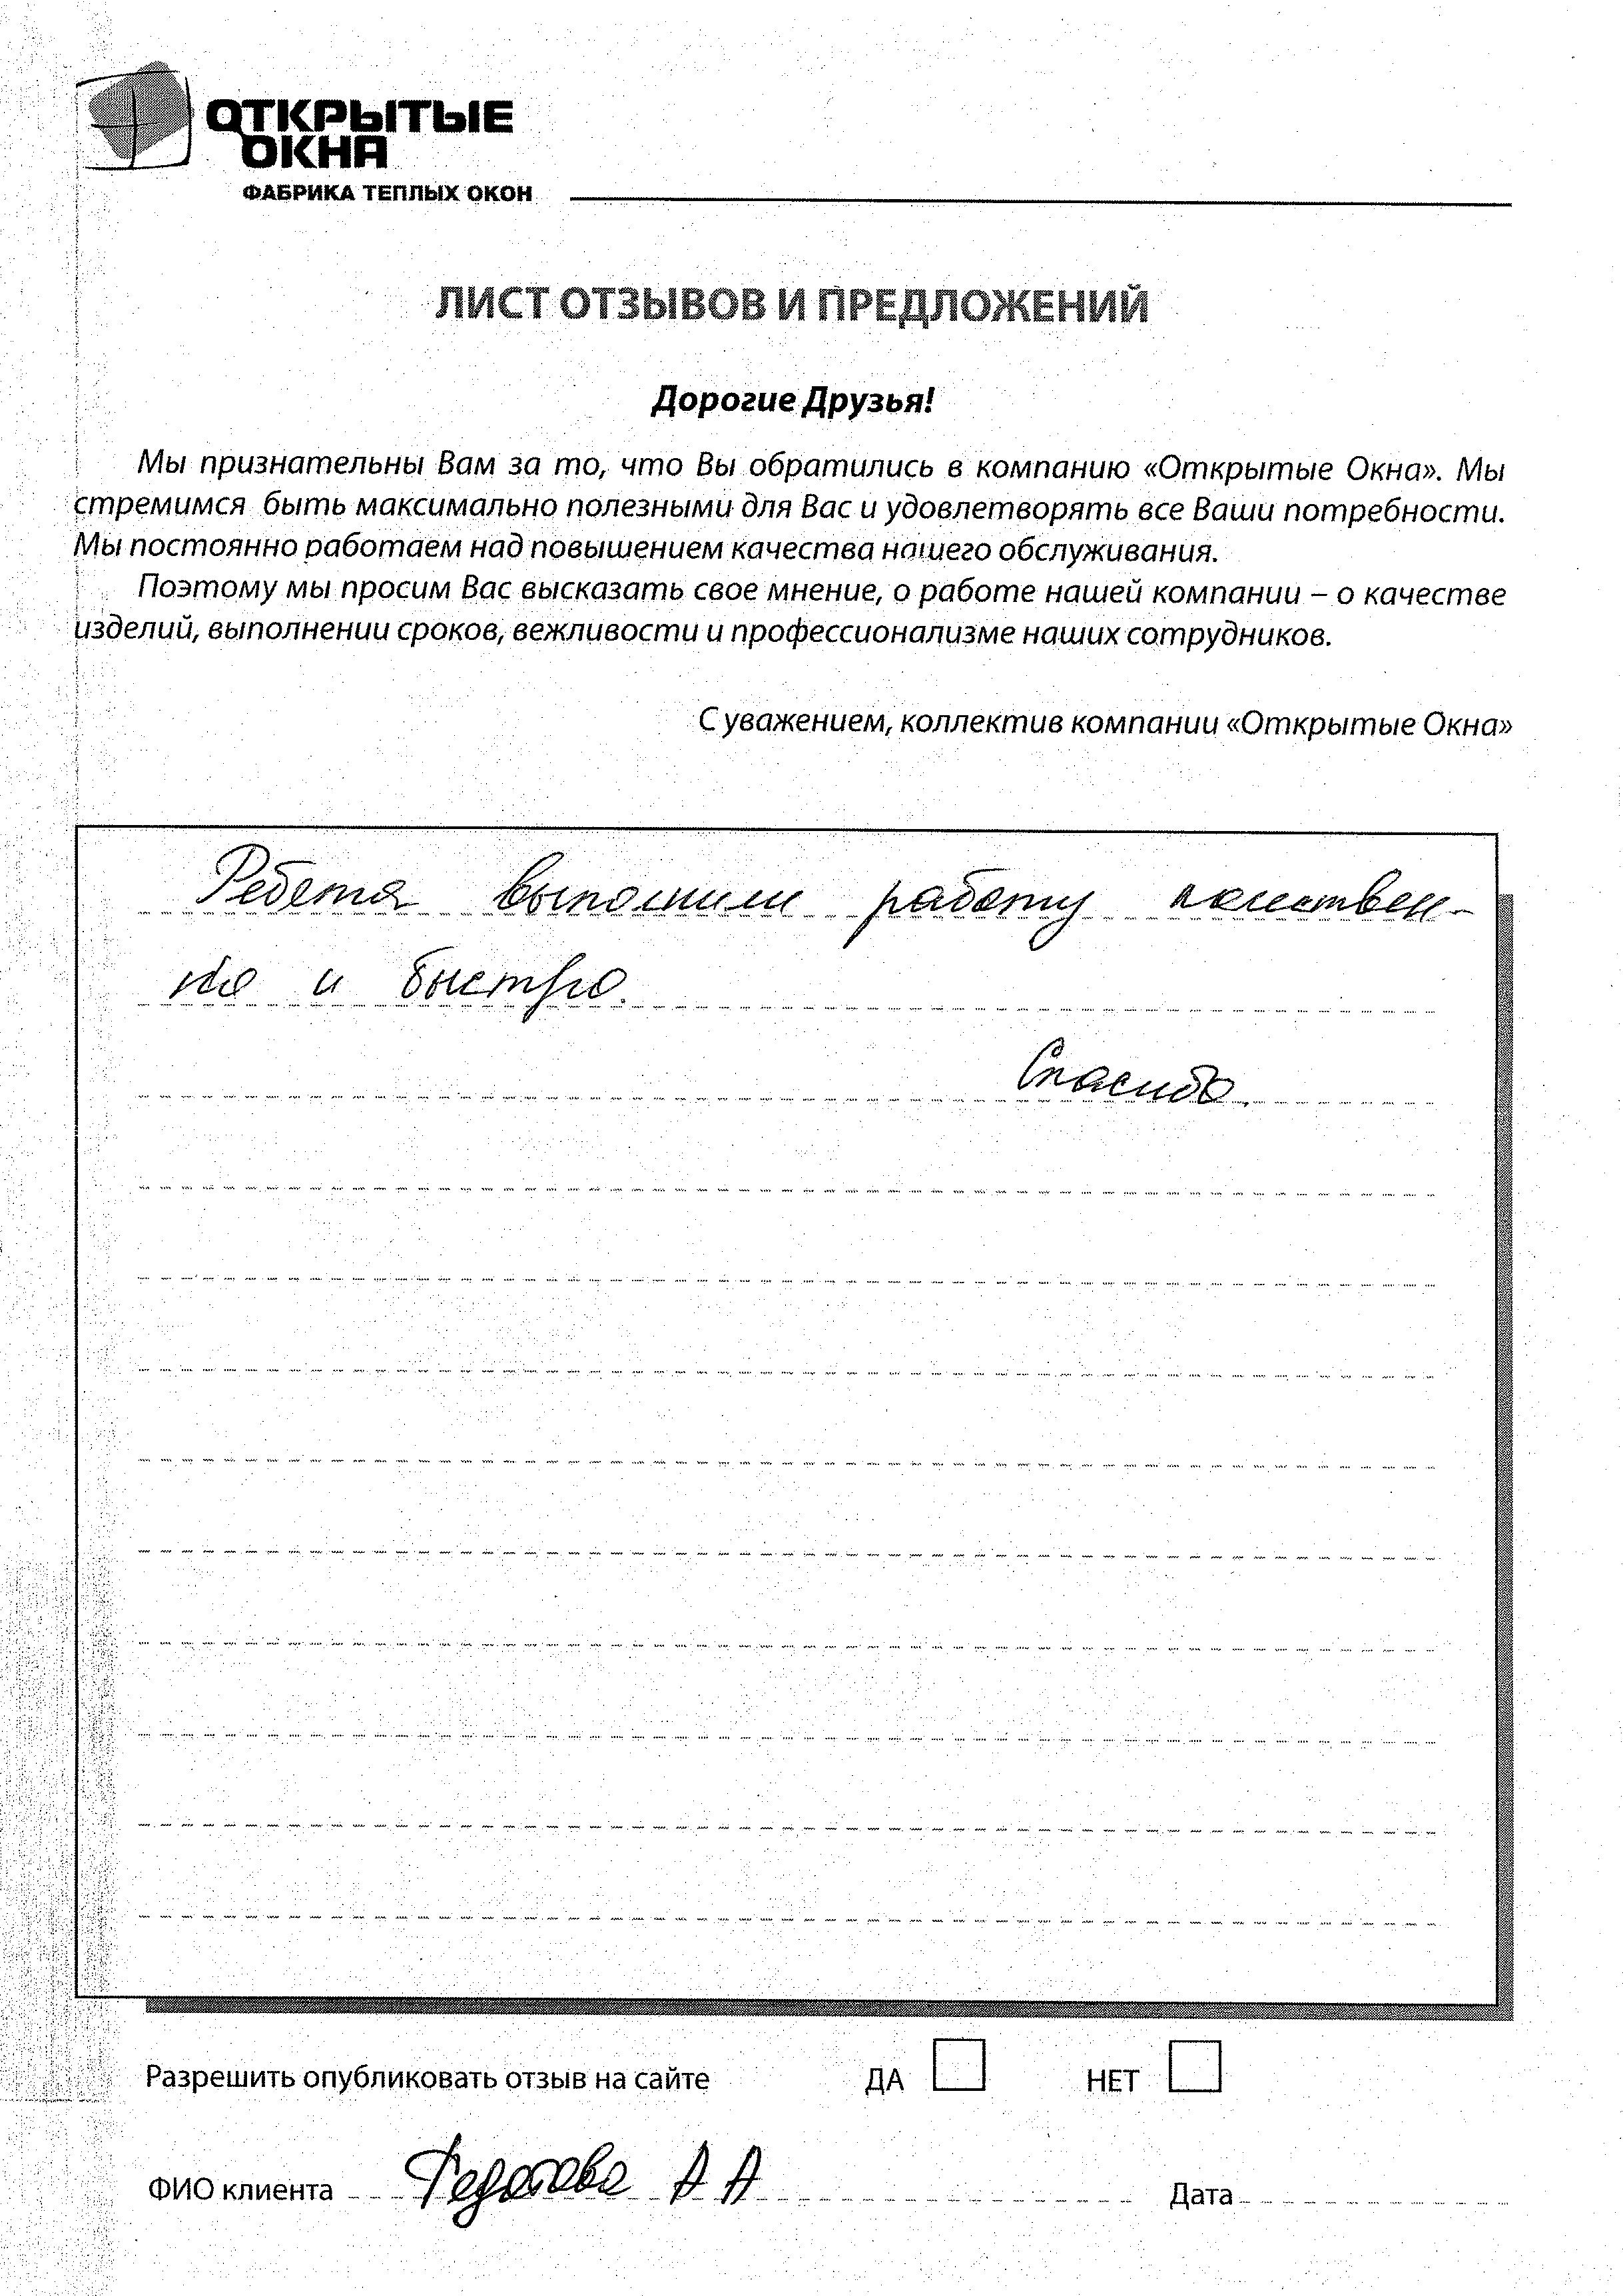 ОТКРЫТЫЕ
ОКНА
ФАБРИКА ТЕПЛЫХ ОКОН
ЛИСТ ОТЗЫВОВ И ПРЕДЛОЖЕНИЙ
Дорогие Друзья!
Мы признательны Вам за то, что Вы обратились в компанию «Открытые Окна». Мы
стремимся быть максимально полезными для Вас и удовлетворять все Ваши потребности.
Мы постоянно работаем над повышением качества нашего обслуживания.
Поэтому мы просим Вас высказать свое мнение, о работе нашей компании – о качестве
изделий, выполнении сроков, вежливости и профессионализме наших сотрудников.
С уважением, коллектив компании «Открытые Окна»
Ребята выполнили работу качествен-
но и быстро.
Спасибо.
Разрешить опубликовать отзыв на сайте ДА НЕТ
ФИО клиента А А Дата